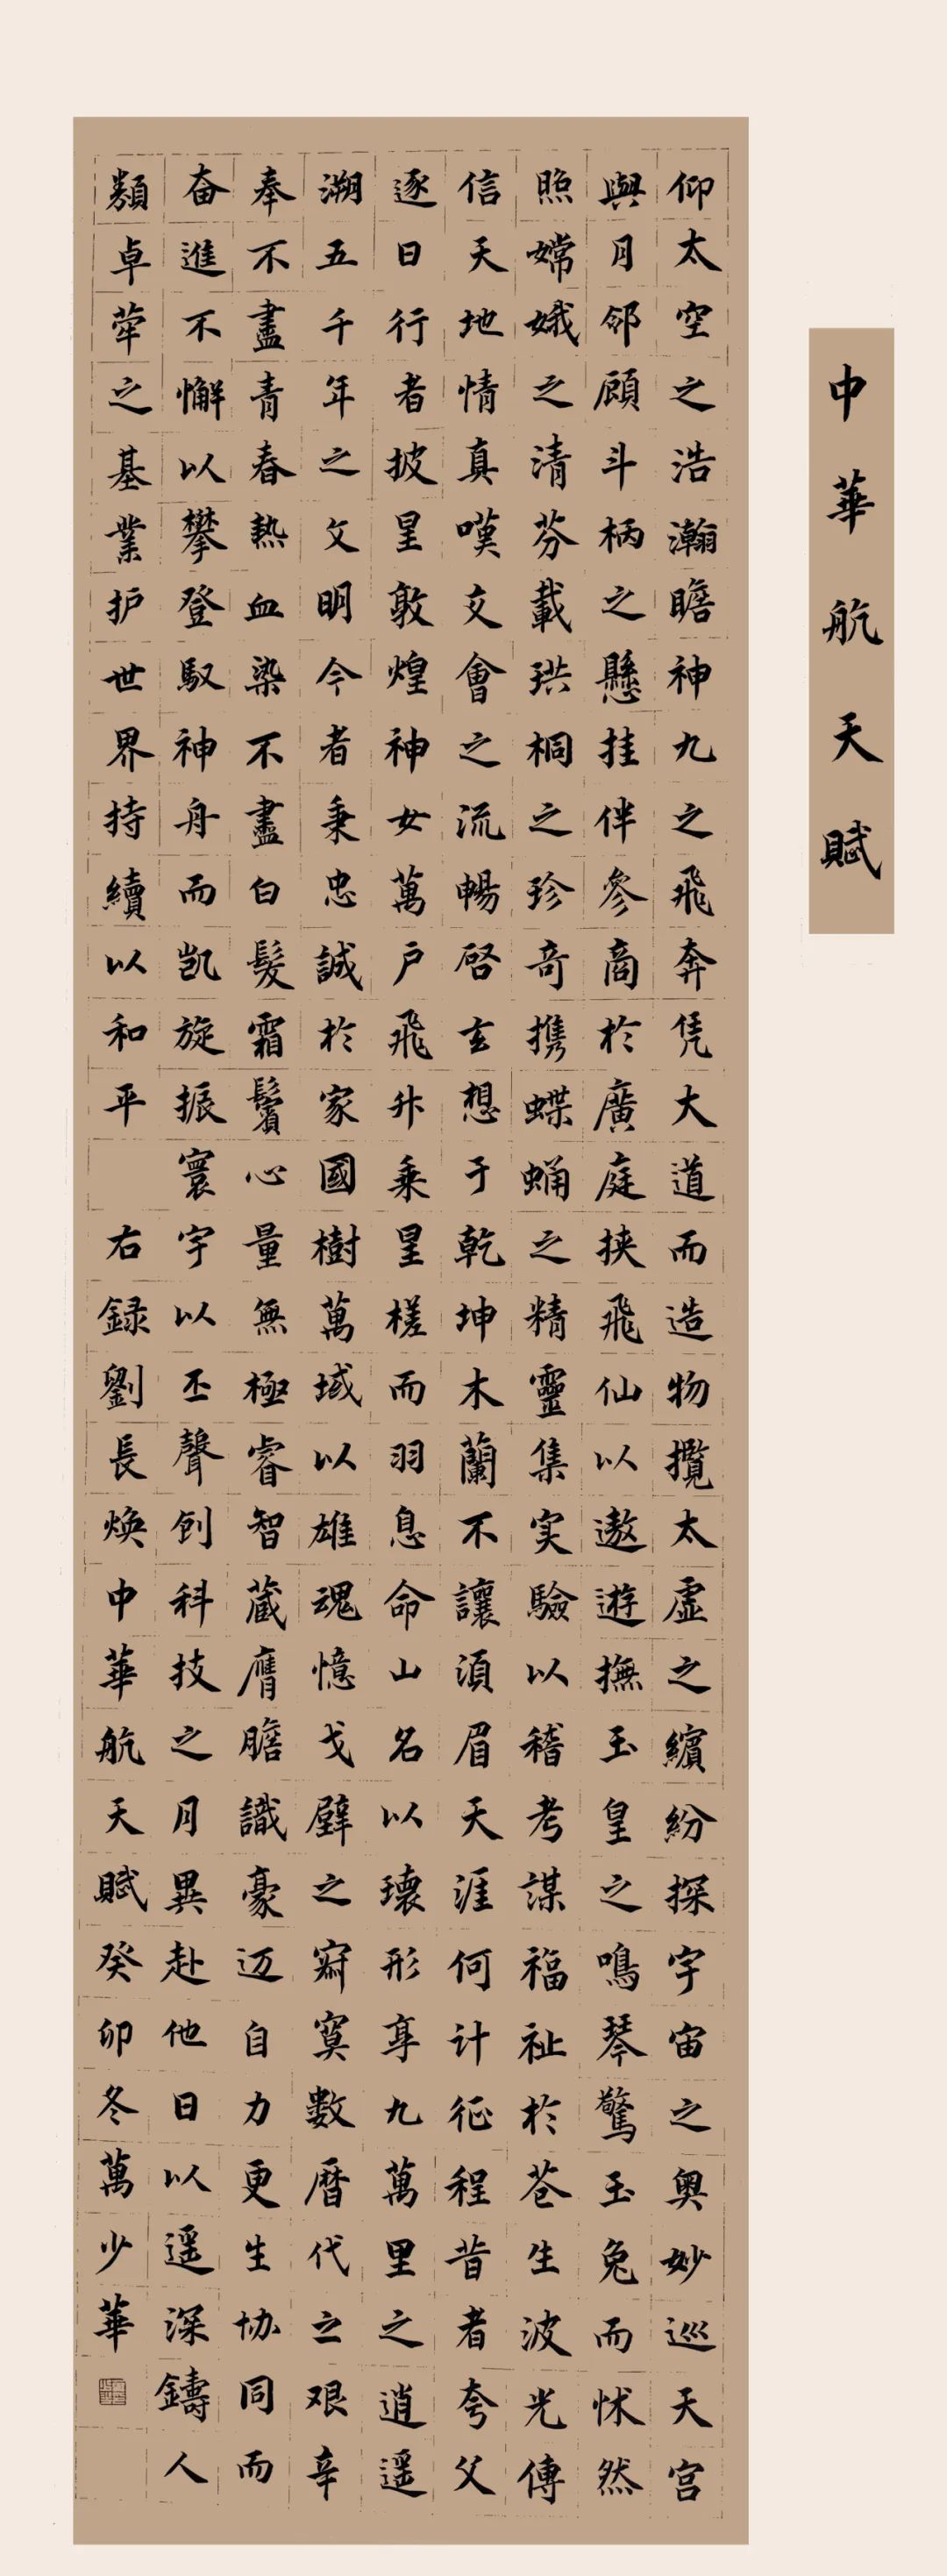 中華航天賦
仰太空之浩瀚瞻神九之飛奔凭大道而造物攬太虛之繽紛探宇宙之奧妙巡天宮
與月邻顧斗柄之懸挂伴參商於廣庭挾飛仙以遨遊撫玉皇之鳴琴驚玉兔而怵然
照嫦娥之清芬載珙桐之珍奇攜蝶蛹之精靈集实驗以稽考謀福祉於苍生波光傳
信天地情真嘆交會之流暢啓玄想于乾坤木蘭不讓須眉天涯何计征程昔者夸父
逐日行者披星敦煌神女萬户飛升乘星槎而羽息命山名以瓌形享九萬里之逍遥
溯五千年之文明今者秉忠誠於家國樹萬域以雄魂憶戈壁之寂寞數曆代之艰辛
奉不盡青春熱血染不盡白髮霜鬢心量無極睿智蔵膺瞻識豪迈自力更生协同而
奋進不懈以攀登馭神舟而凯旋振寰宇以丕聲創科技之月異赴他日以遥深鑄人
類卓犖之基業护世界持續以和平 右録劉長焕中華航天賦癸卯冬萬少華